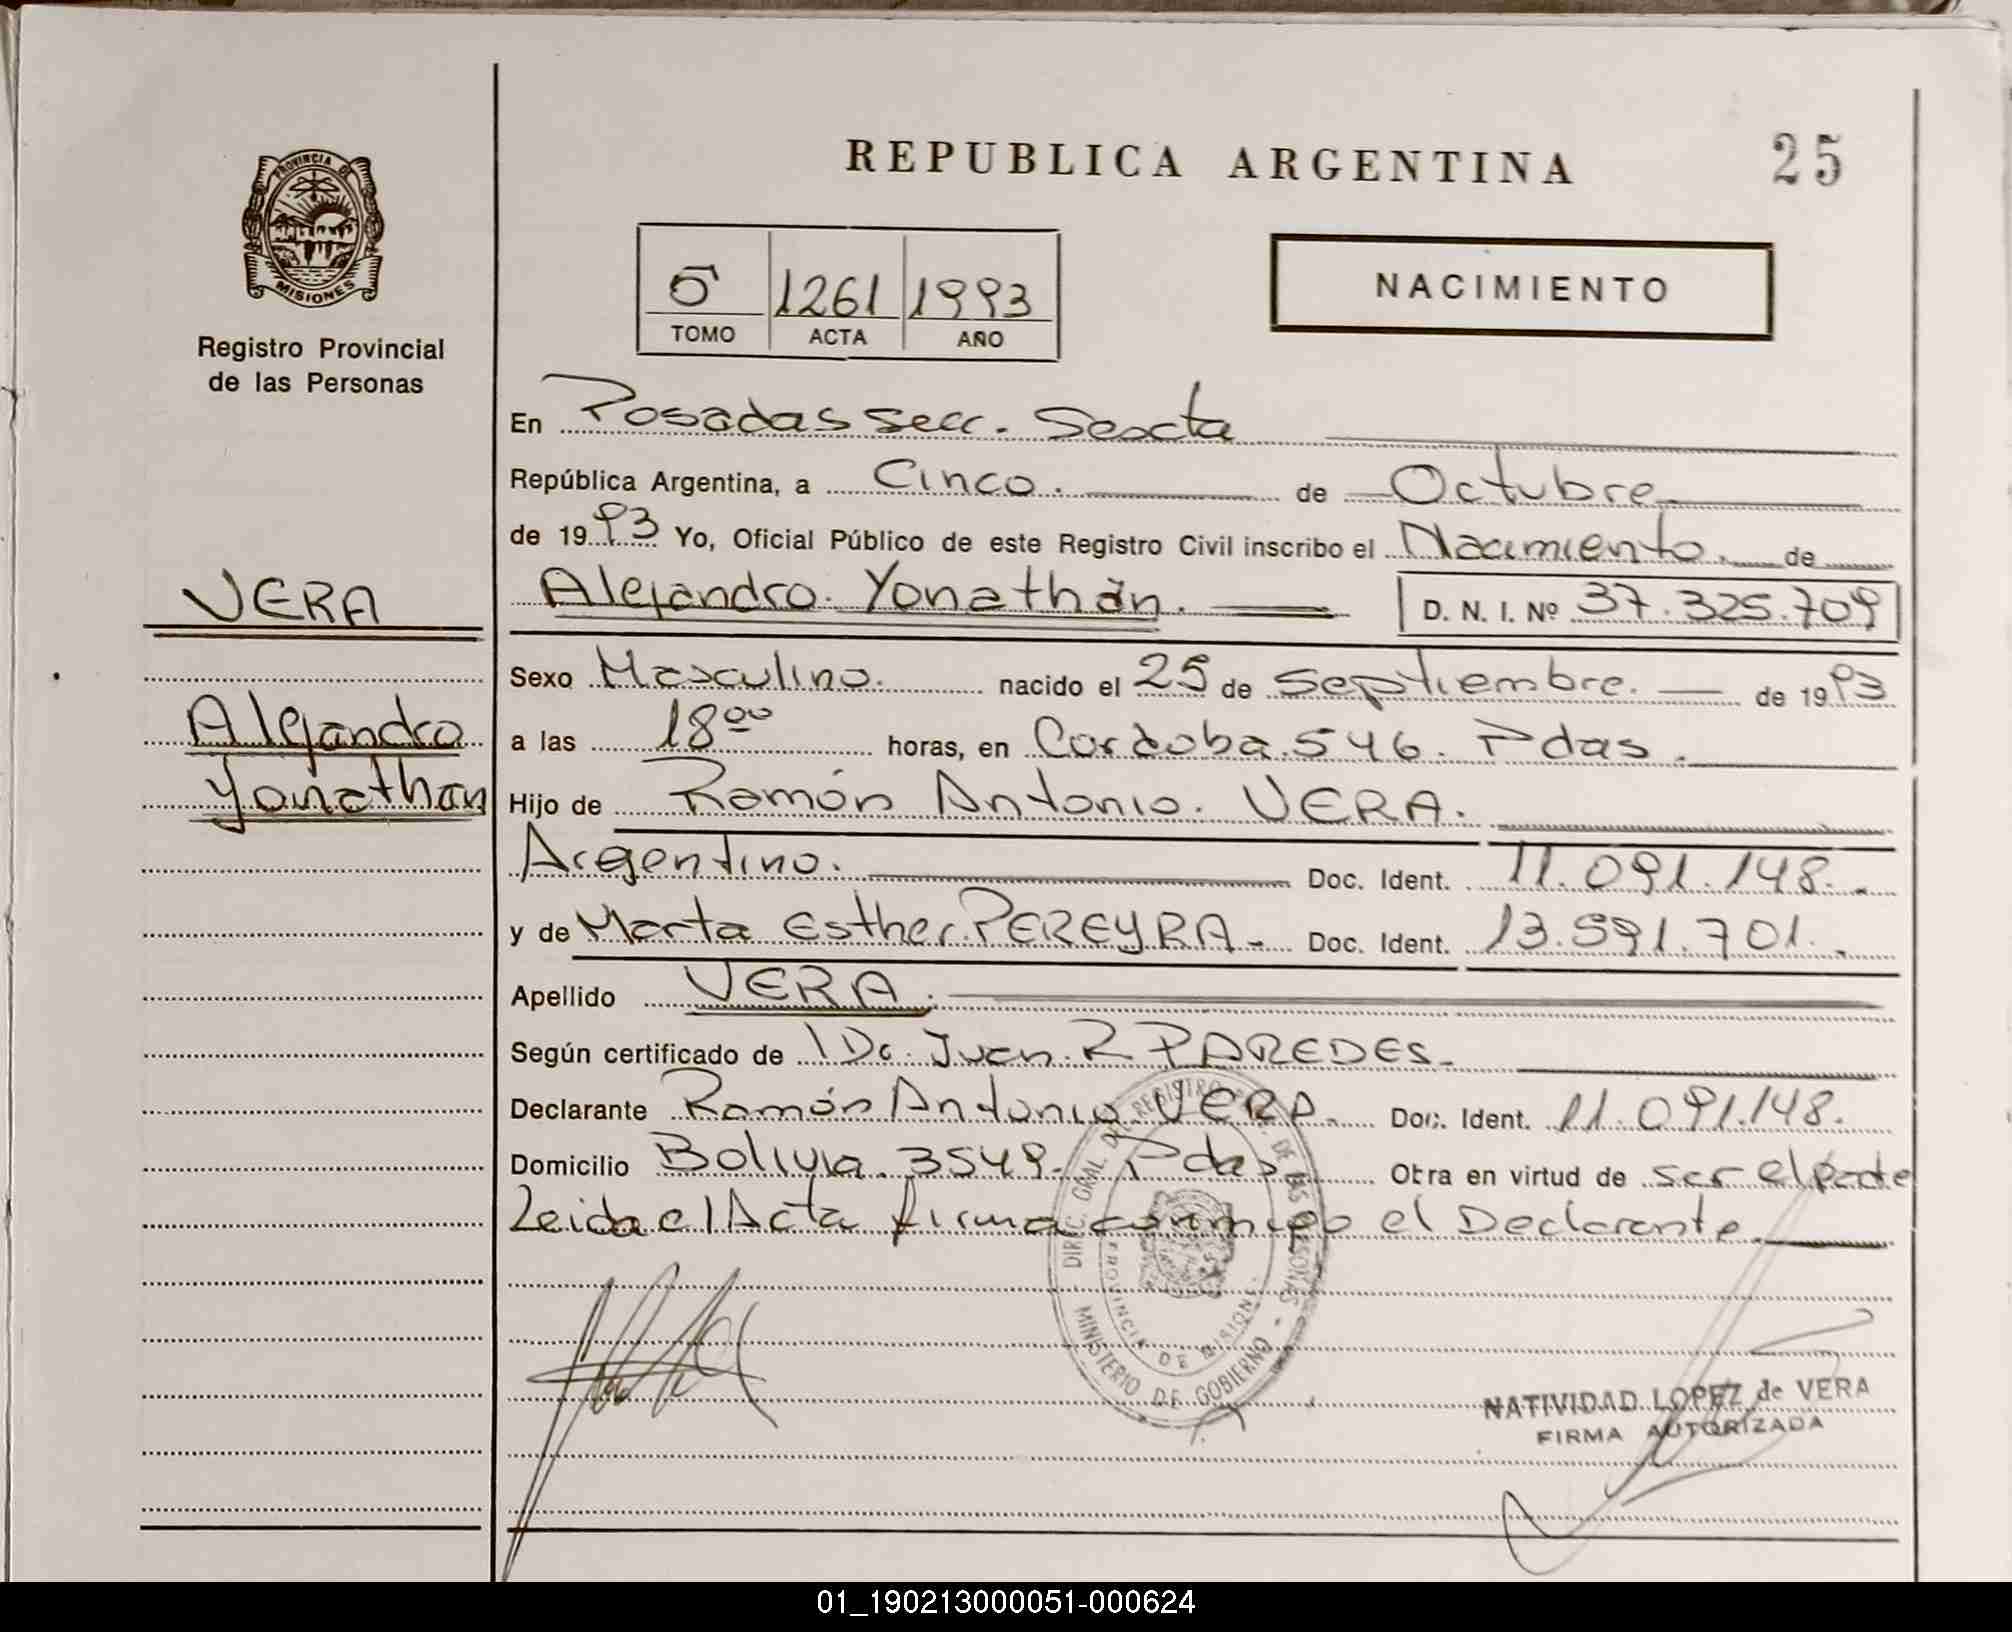 REPUBLICA ARGENTINA
25
PROVINCIA DE
MISIONES
Registro Provincial
de las Personas
5 1261 1993
TOMO ACTA AÑO
NACIMIENTO
En Posadas secc. Sexta
República Argentina, a Cinco. de Octubre
de 1993 Yo, Oficial Público de este Registro Civil inscribo el Nacimiento. de
VERA
Alejandro. Yonathán. D. N. I. Nº 37.325.709
Sexo Masculino. nacido el 25 de Septiembre. de 1993
Alejandro
Yonathan
a las 18⁰⁰ horas, en Cordoba. 546. Pdas.
Hijo de Ramón Antonio. VERA.
Argentino. Doc. Ident. 11.091.148.
y de Marta Esther. PEREYRA. Doc. Ident. 13.591.701.
Apellido VERA.
Según certificado de Dr. Juan. R PAREDES.
Declarante Ramón Antonio VERA. Doc. Ident. 11.091.148.
Domicilio Bolivia. 3549. Pdas Otra en virtud de ser el padre
Leida el Acta firma conmigo el Declarante
DIREC. GRAL. DE REGISTRO DE LAS PERSONAS
PROVINCIA DE MISIONES
MINISTERIO DE GOBIERNO
NATIVIDAD LOPEZ de VERA
FIRMA AUTORIZADA
01_190213000051-000624